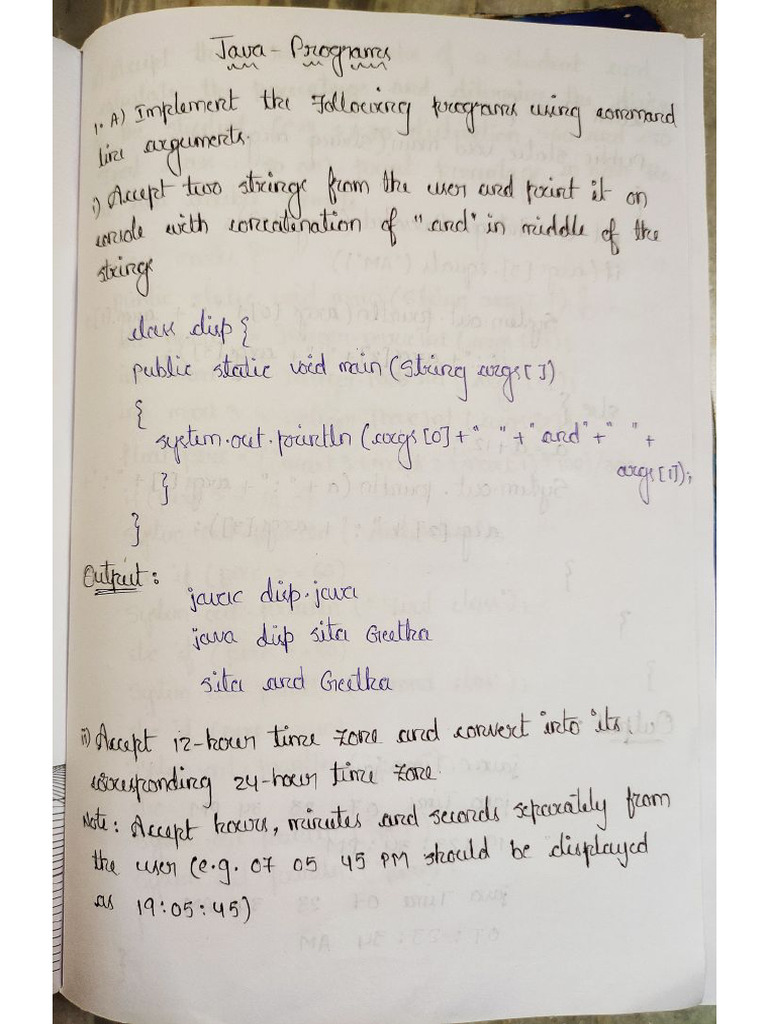 Java - Programs
1. A) Implement the Following programs using command
line arguments.
i) Accept two strings from the user and print it on
console with concatenation of "and" in middle of the
strings
class disp {
public static void main (String args[])
{
system.out.println (args [0] + " " + "and" + " " +
args [1]);
}
}
Output:
javac disp.java
java disp sita Geetha
sita and Geetha
ii) Accept 12-hour time zone and convert into its
corresponding 24-hour time zone.
Note: Accept hours, minutes and seconds separately from
the user (e.g. 07 05 45 PM should be displayed
as 19:05:45)